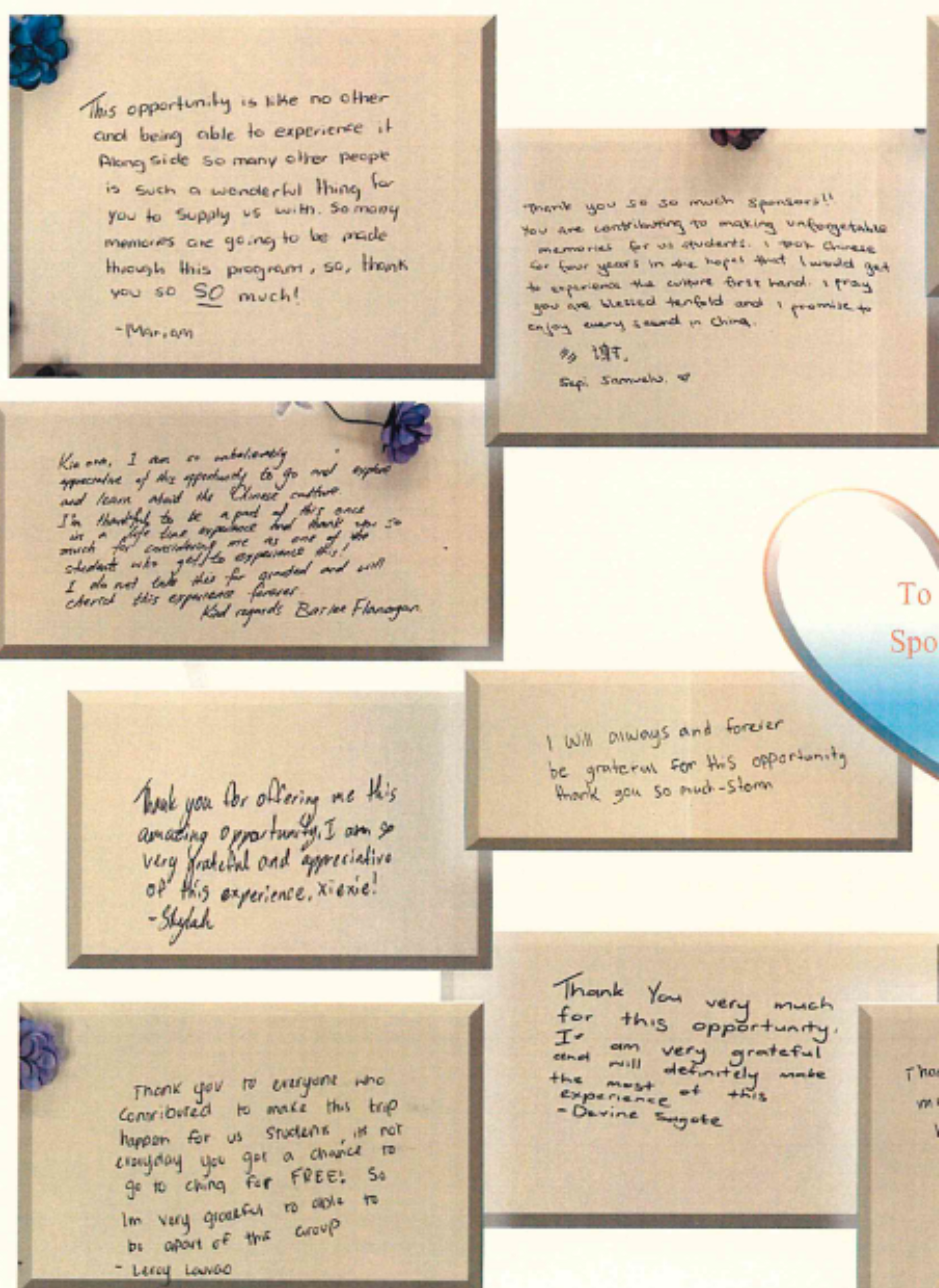 This opportunity is like no other
and being able to experience it
Along side so many other people
is such a wonderful thing for
you to supply us with. So many
memories are going to be made
through this program, so, thank
you so SO much!
-Mariam
Thank you so so much sponsors!!
You are contributing to making unforgetable
memories for us students. I took Chinese
for four years in the hopes that I would get
to experience the culture first hand. I pray
you are blessed tenfold and I promise to
enjoy every second in China.
谢谢,
Sepi Samuelu.
Kia ora, I am so unbelievably
appreciative of this opportunity to go and explore
and learn about the Chinese culture.
I'm thankful to be a part of this once
in a life time experience and thank you so
much for considering me as one of the
students who get to experience this!
I do not take this for granted and will
cherish this experience forever.
Kind regards Flanagan.
To
Spo
I will always and forever
be grateful for this opportunity
thank you so much-Storm
Thank you for offering me this
amazing opportunity. I am so
very grateful and appreciative
of this experience, xiexie!
-Skylah
Thank You very much
for this opportunity.
I am very grateful
and will definitely make
the most of this
experience
-Devine
Thank you to everyone who
Contributed to make this trip
happen for us students, its not
everyday you get a chance to
go to china for FREE! So
Im very grateful to able to
be apart of this Group
- Leroy